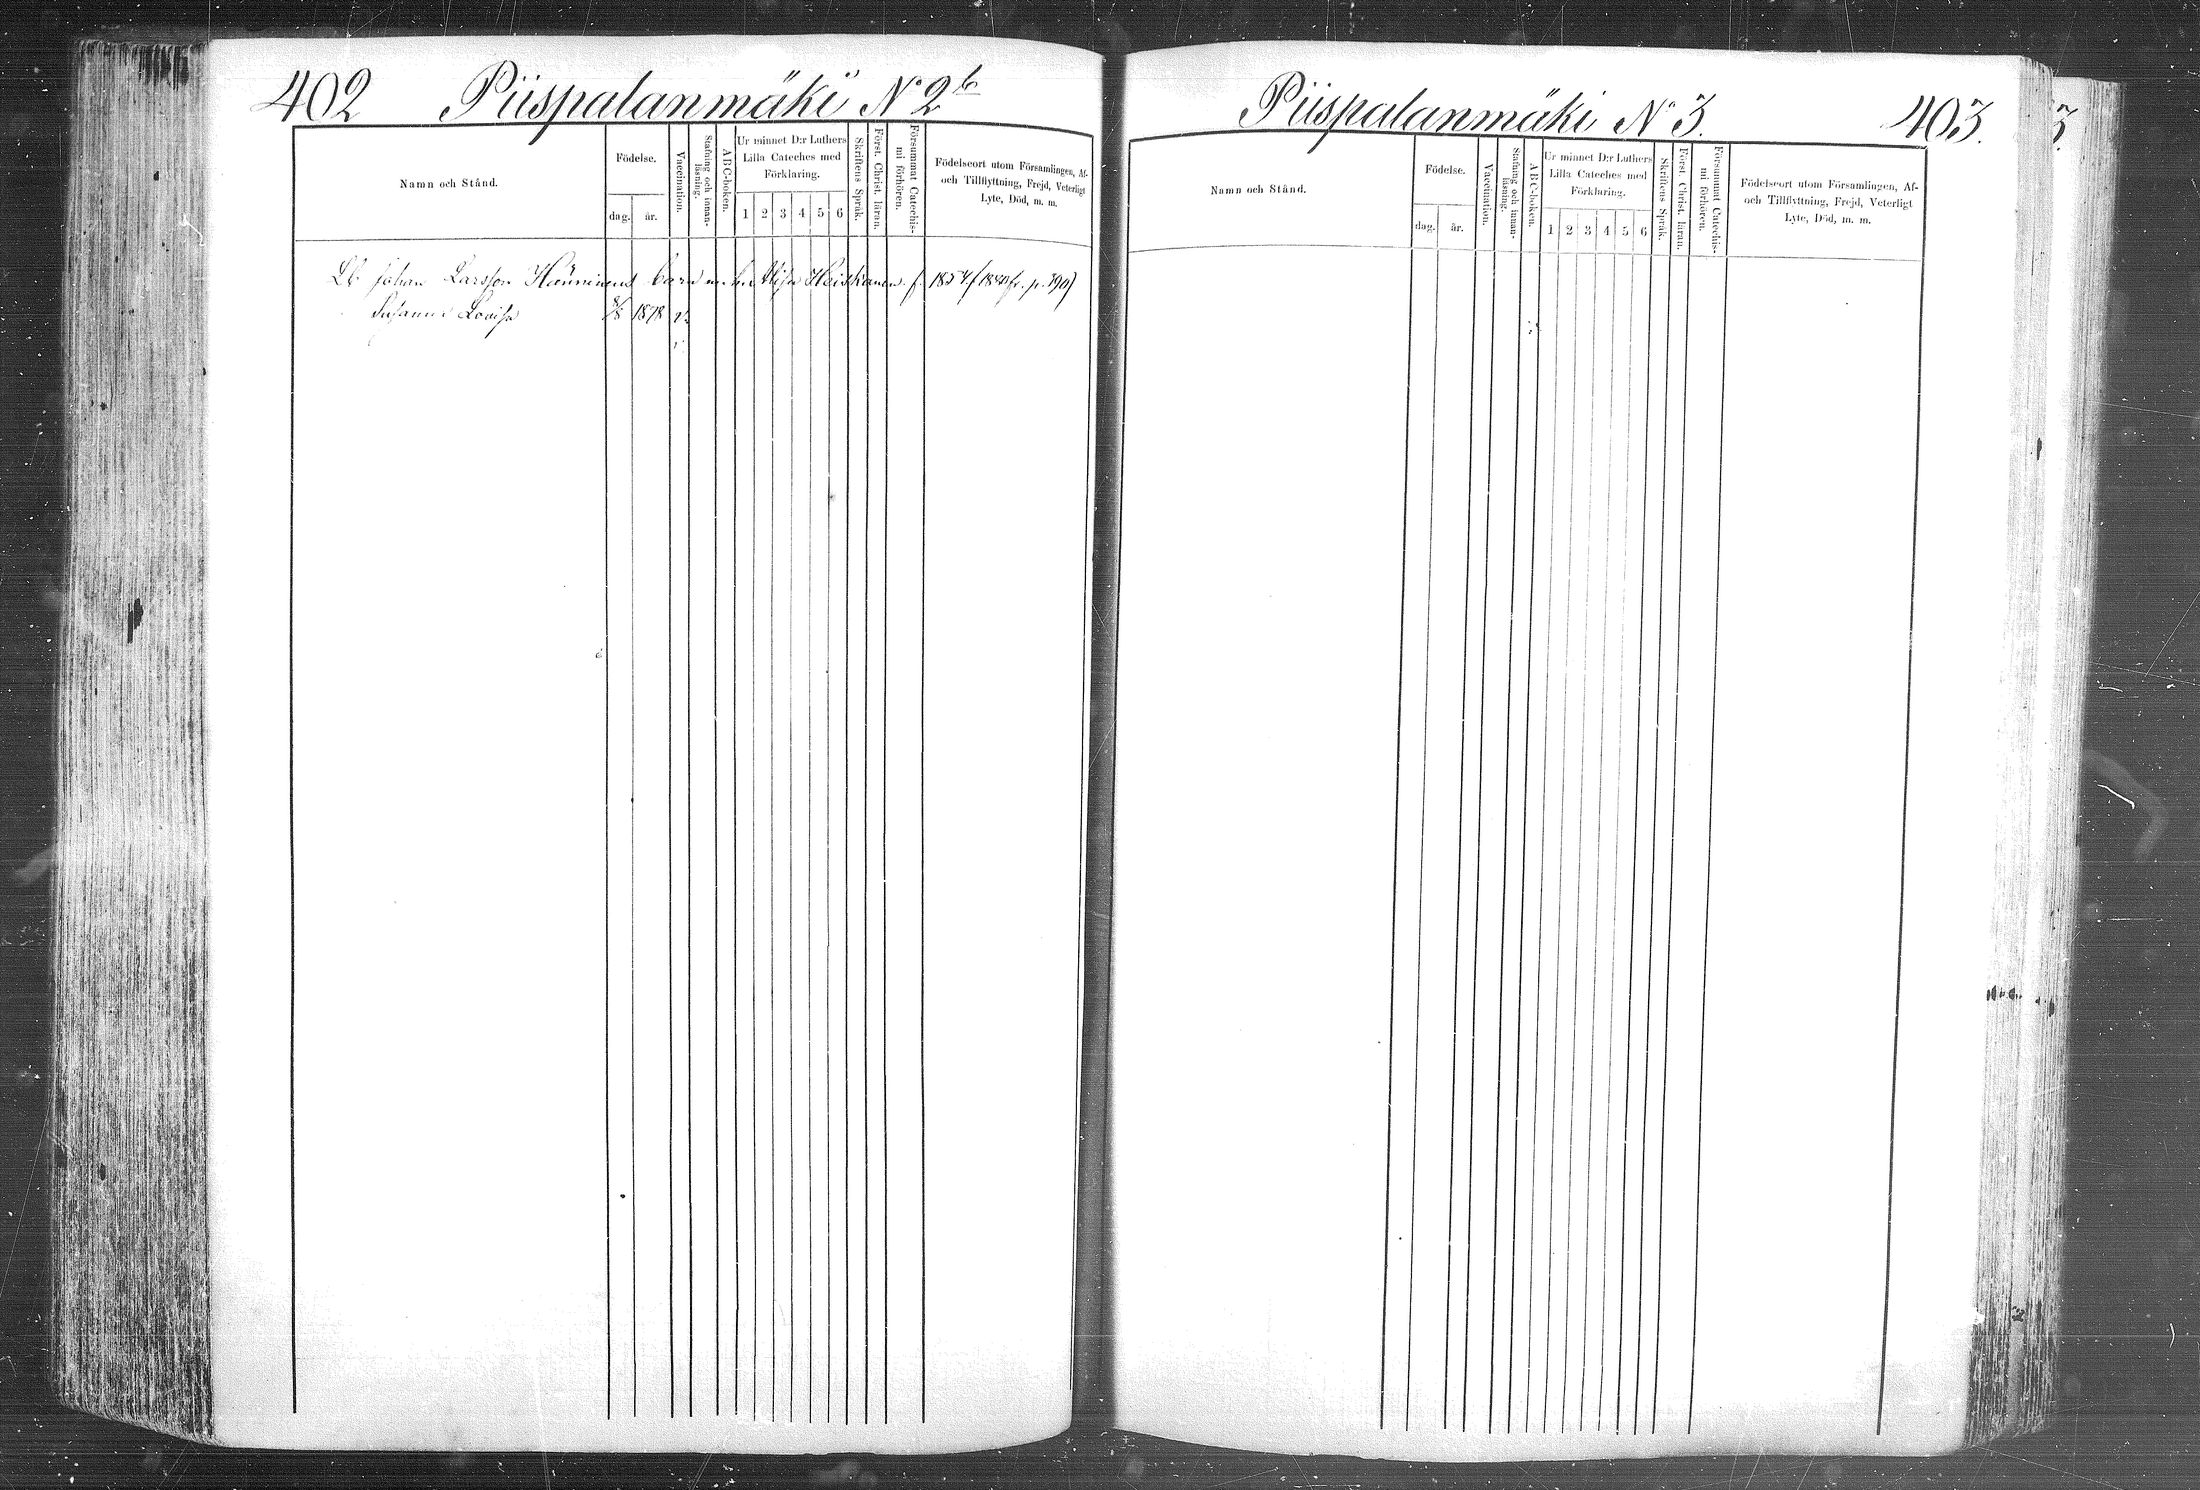 402 Piispalanmäki N:o 2 b
Namn och Stånd.
Födelse.
dag.
år.
Vaccination.
Stafning och innan-
läsning.
ABC-boken.
Ur minnet D:r Luthers
Lilla Cateches med
Förklaring.
1 2 3 4 5 6
Skriftens Språk.
Först. Christ. läran.
Försummat Catechis-
mi förhören.
Födelseort utom Församlingen, Af-
och Tillflyttning, Frejd, Veterligt
Lyte, Död, m. m.
Johan Larsson Hänninens barn m. h. Heiskanen f.
Susanna Lovisa 8/8 1878
Piispalanmäki N:o 3. 403.
Namn och Stånd.
Födelse.
dag.
år.
Vaccination.
Stafning och innan-
läsning.
ABC-boken.
Ur minnet D:r Luthers
Lilla Cateches med
Förklaring.
1 2 3 4 5 6
Skriftens Språk.
Först. Christ. läran.
Försummat Catechis-
mi förhören.
Födelseort utom Församlingen, Af-
och Tillflyttning, Frejd, Veterligt
Lyte, Död, m. m.